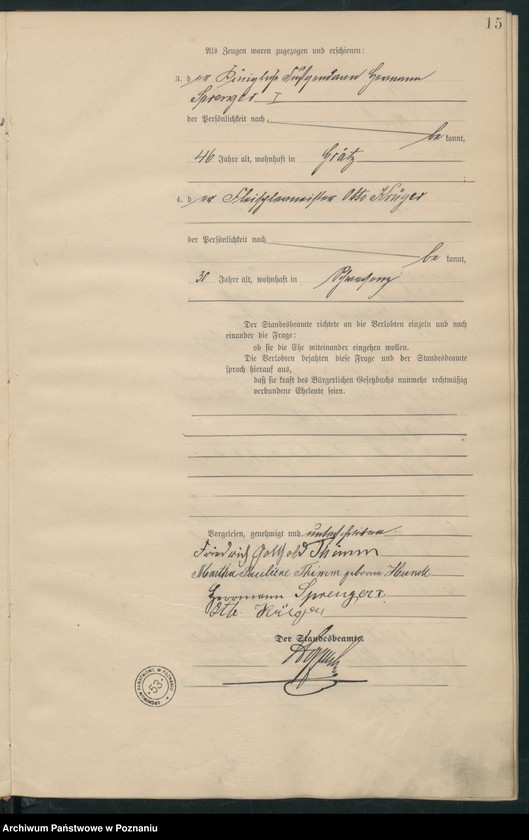 15
Als Zeugen waren zugezogen und erschienen:
3. der Königliche Hermann
Sprenger I
der Persönlichkeit nach
be kannt,
46 Jahre alt, wohnhaft in Grätz
4. der Fleischermeister Otto Krüger
der Persönlichkeit nach
be kannt,
30 Jahre alt, wohnhaft in
Der Standesbeamte richtete an die Verlobten einzeln und nach
einander die Frage:
ob sie die Ehe miteinander eingehen wollen.
Die Verlobten bejahten diese Frage und der Standesbeamte
sprach hierauf aus,
daß sie kraft des Bürgerlichen Gesetzbuchs nunmehr rechtmäßig
verbundene Eheleute seien.
Vorgelesen, genehmigt und unterschrieben
Friedrich Gotthold Thimm
Martha Pauline Thimm geborene
Herrmann Sprenger I.
Otto Krüger
Der Standesbeamte.
ARCHIWUM PAŃSTWOWE W POZNANIU
53
Archiwum Państwowe w Poznaniu